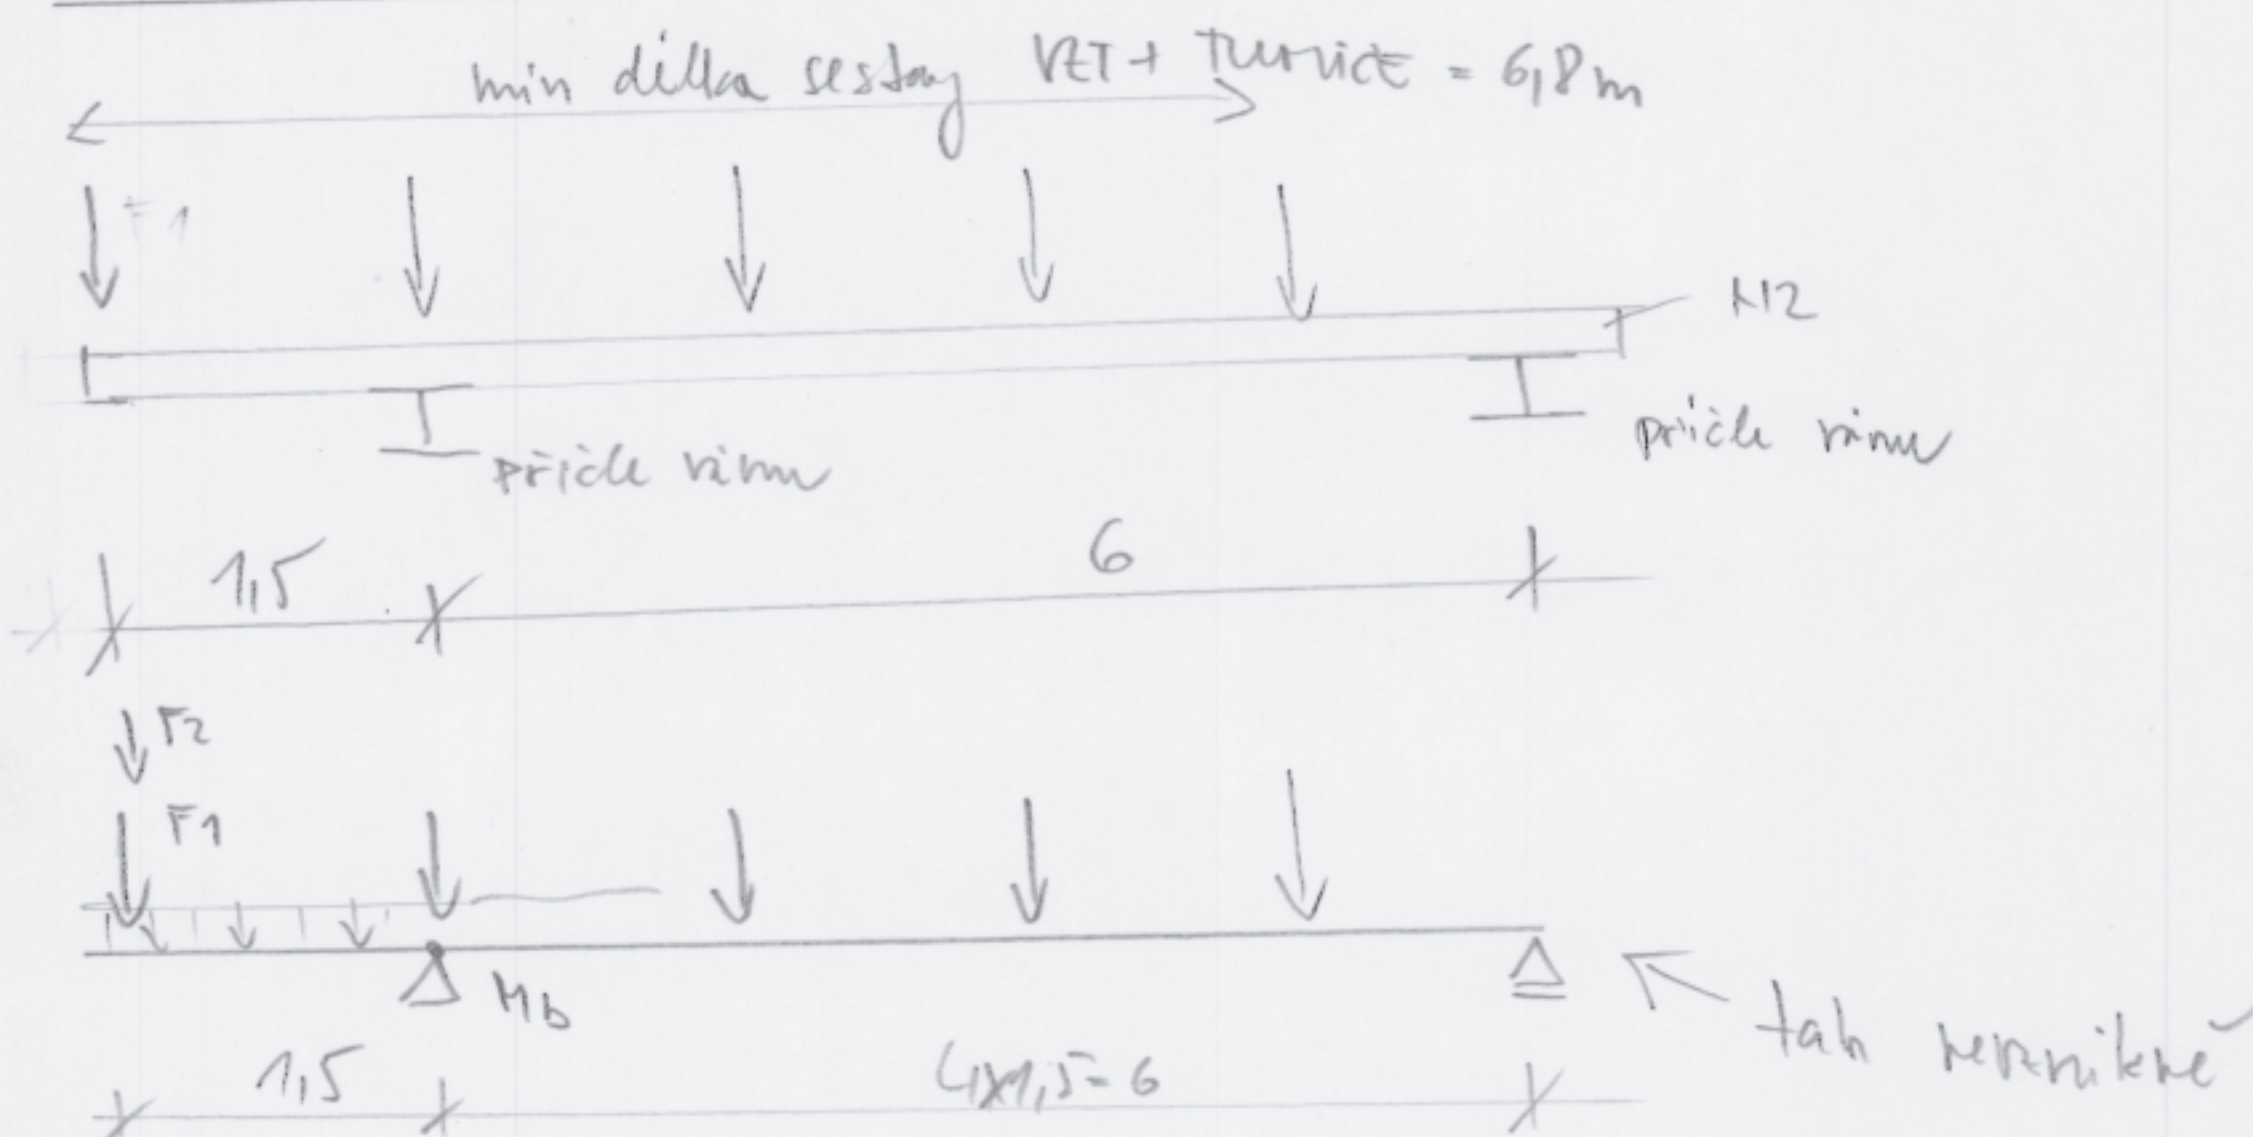 min délka sestavy VZT + TLUMIČE = 6,8m
F1
N2
příčle rámu
příčle rámu
1,5
6
F2
F1
Mb
tah nevznikne
1,5
4x1,5=6